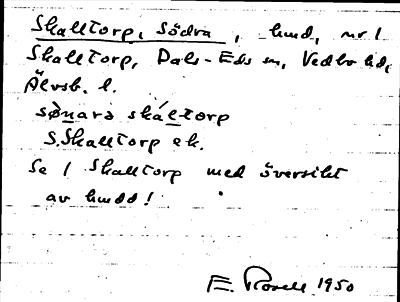 Skalltorp, Södra, hmd, nr 1
Skalltorp, Dals-Eds sn, Vedbo hd,
Älvsb. l.
sønarə skáltorp
S. Skalltorp ek.
Se 1 Skalltorp med översikt
av hmdd!
E. Rosell 1950